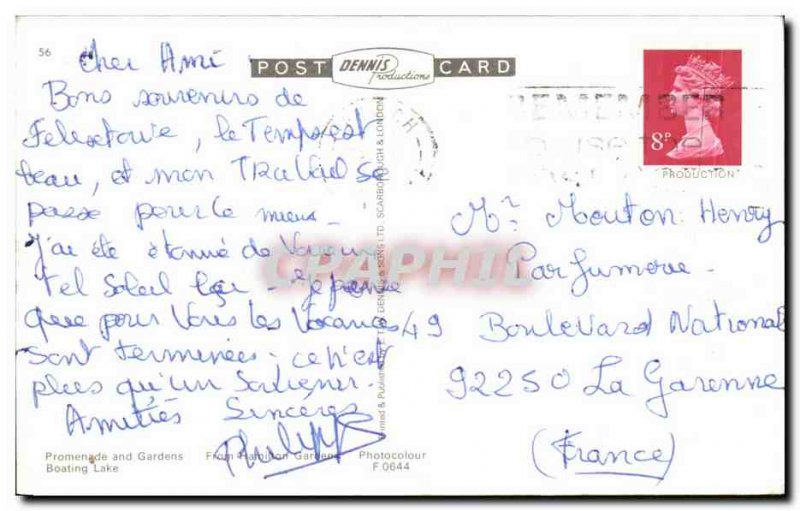 56
POST DENNIS Productions CARD
Cher Ami
Bons souvenirs de
Felixstowe, le Temps est
beau, et mon Travail se
passe pour le mieux -
J'ai été étonné de Voir un
Tel Soleil ici - Je pense
que pour Vous les Vacances
sont terminées - ce n'est
plus qu'un Souvenir.
Amitiés Sincères
Philippe
REMEMBER
8P
PRODUCTION
Mr Mouton Henry
Parfumerie -
49 Boulevard National
92250 La Garenne
(France)
CPAPHIL
Printed & Published by E.T.W. DENNIS & SONS LTD. SCARBOROUGH & LONDON
Promenade and Gardens From Hamilton Gardens Photocolour
Boating Lake F.0644